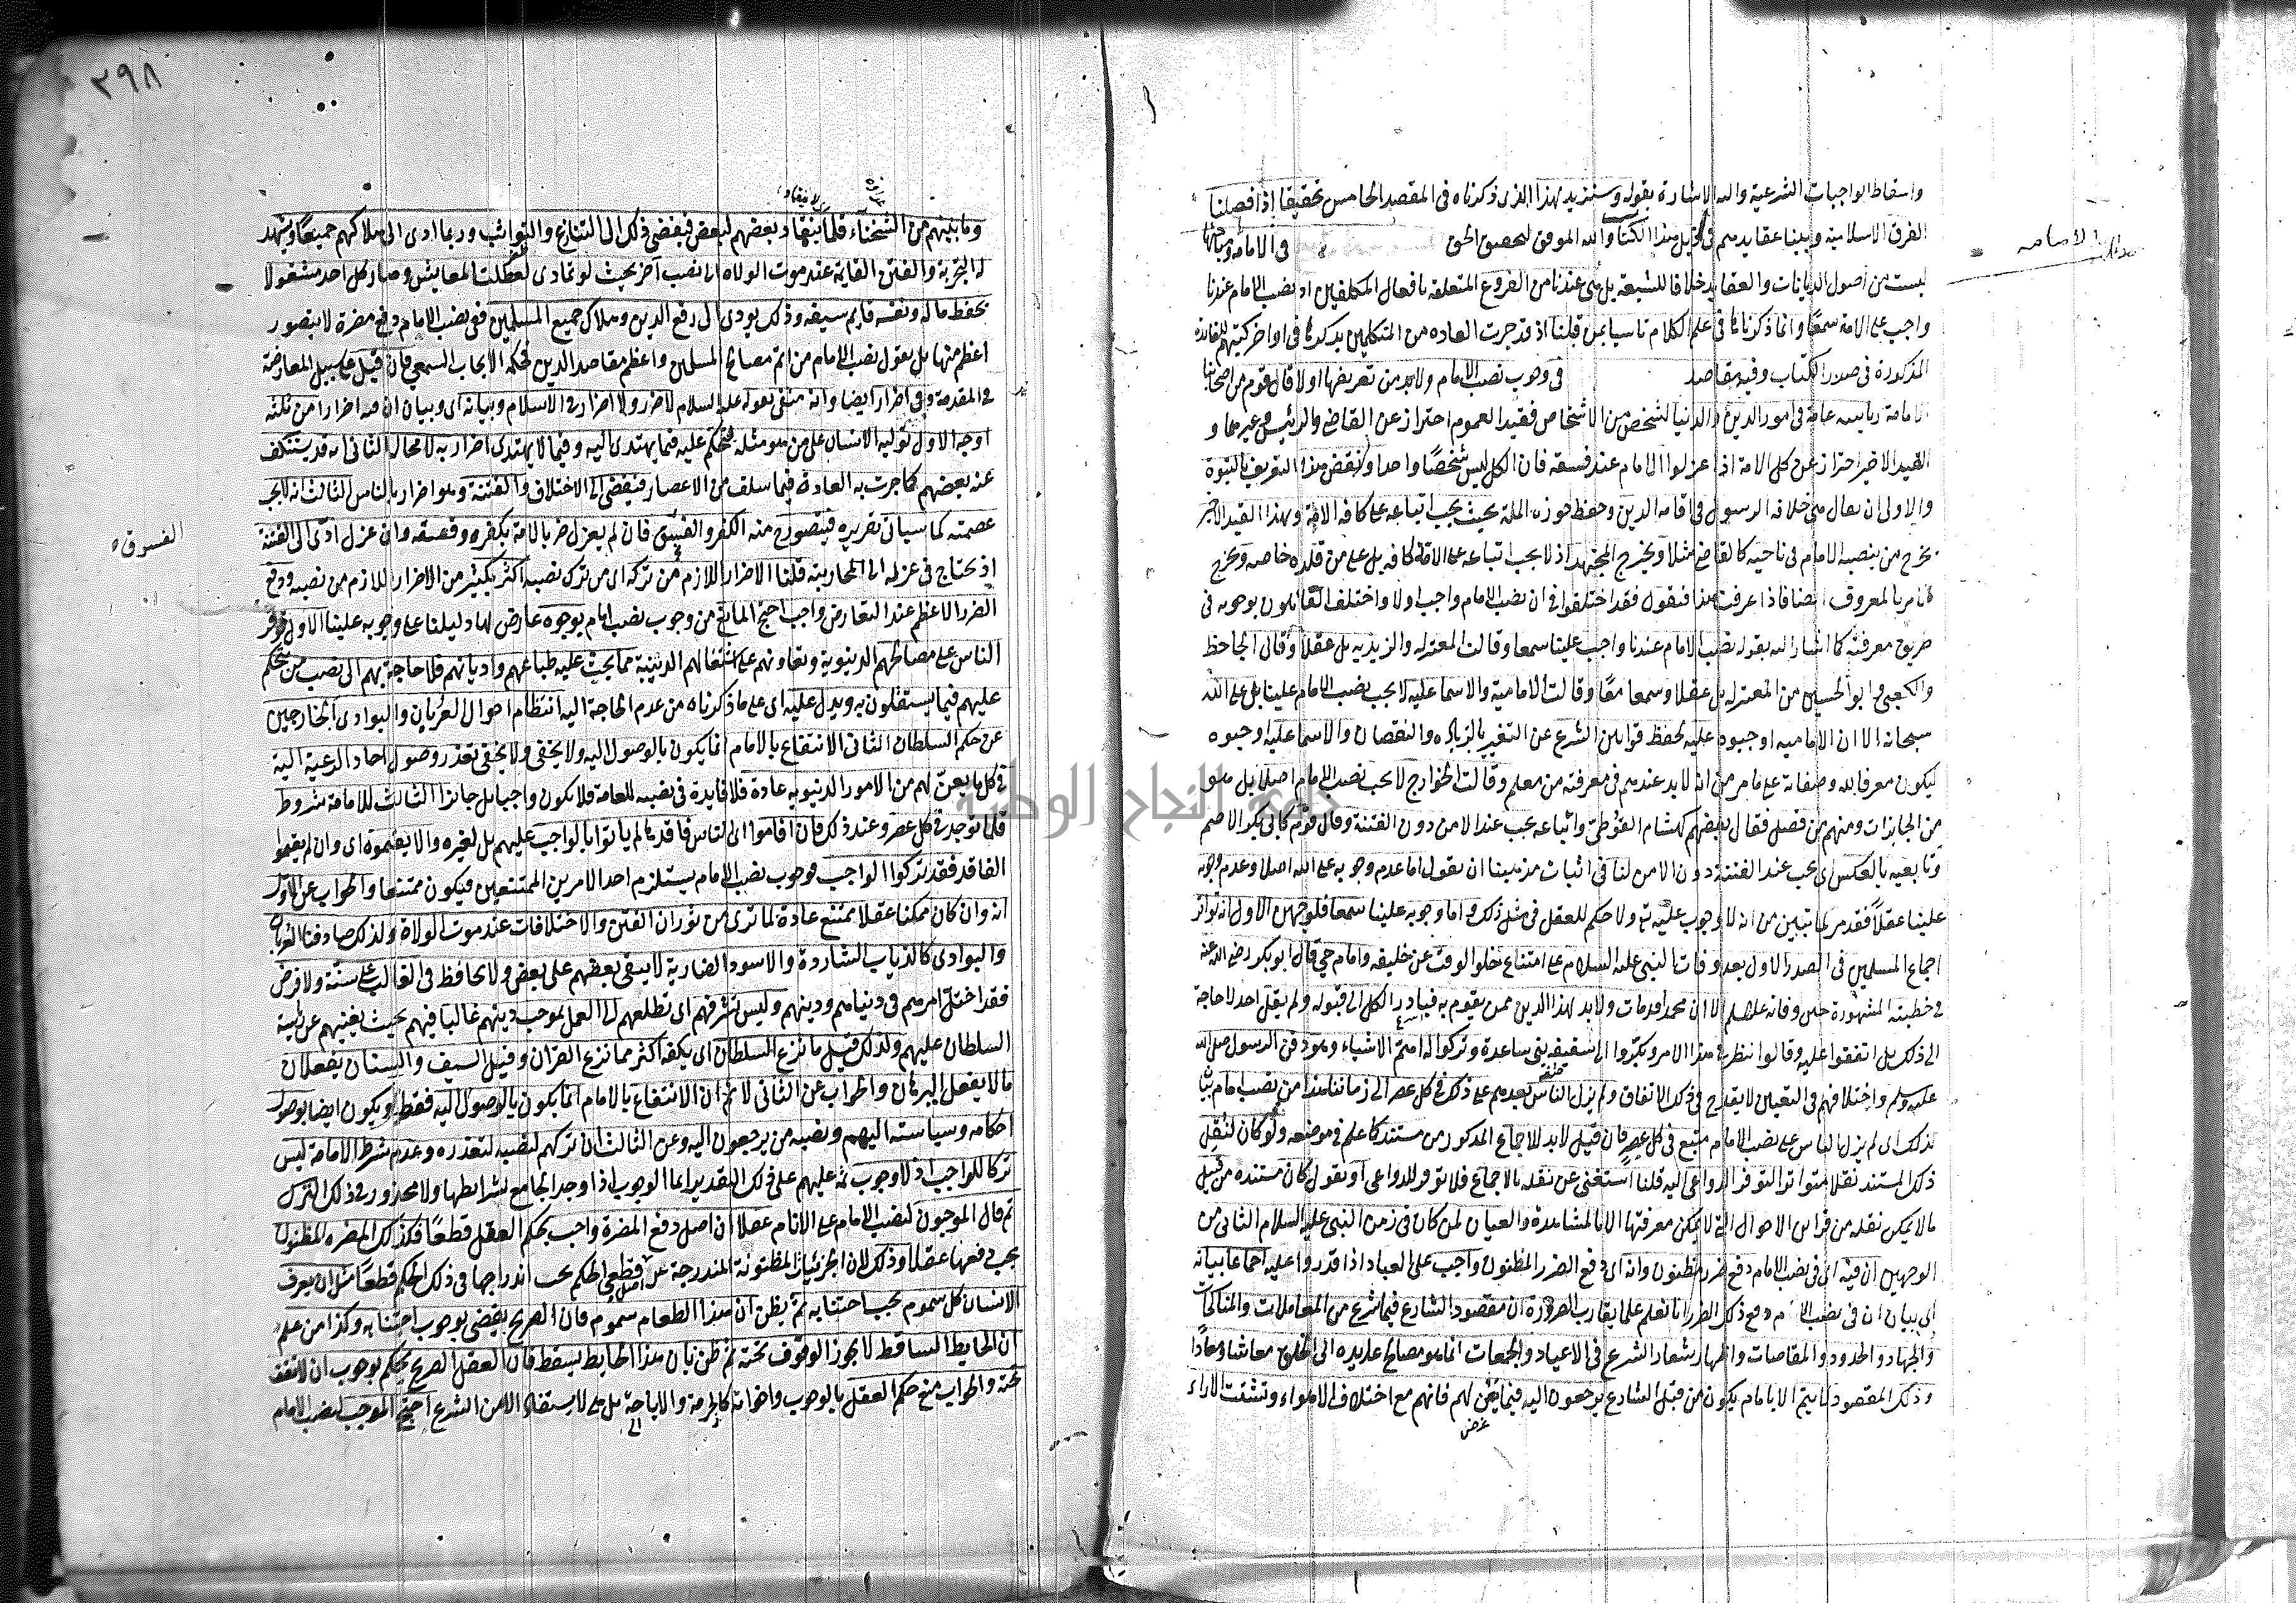 واسقاط الواجبات الشرعية واليه الاشارة بقوله وستزيد لهذا الذى ذكرناه فى المقصد الخامس تحقيقا اذا فصلنا
الفرق الاسلامية وبينا عقايدهم فى ذيل هذا الكتاب والله الموفق لتحقيق الحق فى الامامة ومباحثها
ليست من اصول الديانات والعقايد خلافا للشيعة بل هى عندنا من الفروع المتعلقة بافعال المكلفين اذ نصب الامام عندنا
واجب على الامة سمعا وانما ذكرناها فى علم الكلام تاسيا بمن قبلنا اذ قد جرت العادة من المتكلمين بذكرها فى اواخر كتبهم للفايدة
المذكورة فى صدر الكتاب وفيه مقاصد فى وجوب نصب الامام ولا بد من تعريفها اولا قال قوم من اصحابنا
الامامة رياسة عامة فى امور الدين والدنيا لشخص من الاشخاص فقيد العموم احتراز عن القاضى والرئيس وغيرهما و
القيد الاخير احتراز عن كل الامة اذا عزلوا الامام عند فسقه فان الكل ليس شخصا واحدا ونقض هذا التعريف بالنبوة
والاولى ان يقال هى خلافة الرسول فى اقامة الدين وحفظ حوزة الملة بحيث يجب اتباعه على كافة الامة وبهذا القيد الاخير
يخرج من ينصبه الامام فى ناحية كالقاضى مثلا ويخرج المجتهد اذ لا يجب اتباعه على الامة كافة بل على من قلده خاصة ويخرج
الامر بالمعروف ايضا فاذا عرفت هذا فنقول فقد اختلفوا فى ان نصب الامام واجب اولا واختلف القائلون بوجوبه فى
طريق معرفته كما اشار اليه بقوله نصب الامام عندنا واجب علينا سمعا وقالت المعتزلة والزيدية بل عقلا وقال الجاحظ
والكعبى وابو الحسين من المعتزلة بل عقلا وسمعا معا وقالت الامامية والاسماعيلية لا يجب نصب الامام علينا بل على الله
سبحانه الا ان الامامية اوجبوه عليه لحفظ قوانين الشرع عن التغير بالزيادة والنقصان والاسماعيلية اوجبوه
ليكون معرفا لله وصفاته على ما مر من انه لا بد عندهم فى معرفته من معلم وقالت الخوارج لا يجب نصب الامام اصلا بل هو
من الجايزات ومنهم من فصل فقال بعضهم كهشام الفوطى واتباعه يجب عند الامن دون الفتنة وقال قوم كابى بكر الاصم
وتابعيه بالعكس اى يجب عند الفتنة دون الامن لنا فى اثبات مذهبنا ان نقول اما عدم وجوبه على الله اصلا وعدم وجوبه
علينا عقلا فقد مر لما تبين من انه لا وجوب عليه تع ولا حكم للعقل فى مثل ذلك واما وجوبه علينا سمعا فلوجهين الاول انه تواتر
اجماع المسلمين فى الصدر الاول بعد وفات النبى عليه السلام على امتناع خلو الوقت عن خليفة وامام حتى قال ابو بكر رضى الله عنه
فى خطبته المشهورة حين وفاته عليه السلام الا ان محمدا قد مات ولا بد لهذا الدين ممن يقوم به فبادر الكل الى قبوله ولم يقل احد لا حاجة
الى ذلك بل اتفقوا عليه وقالوا ننظر فى هذا الامر وبكروا الى سقيفة بنى ساعدة وتركوا له اهم الاشياء وهو دفن الرسول صلى الله
عليه وسلم واختلافهم فى التعيين لا يقدح فى ذلك الاتفاق ولم يزل الناس بعدهم على ذلك فى كل عصر الى زماننا هذا من نصب امام متبع
لذلك اى لم يزل الناس على نصب الامام متبع فى كل عصر فان قيل لا بد للاجماع المذكور من مستند كما علم فى موضعه ولو كان لنقل
ذلك المستند نقلا متواترا لتوفر الدواعى اليه قلنا استغنى عن نقله بالاجماع فلا توفر للدواعى او نقول كان مستنده من قبيل
ما لا يمكن نقله من قراين الاحوال التى لا يمكن معرفتها الا بالمشاهدة والعيان لمن كان فى زمن النبى عليه السلام الثانى من
الوجهين ان فيه اى فى نصب الامام دفع ضرر مظنون وانه اى دفع الضرر المظنون واجب على العباد اذا قدروا عليه اجماعا بيانه
اى بيان ان فى نصب الامام دفع ذلك الضرر انا نعلم علما يقارب الضرورة ان مقصود الشارع فيما شرع من المعاملات والمناكحات
والجهاد والحدود والمقاصات واظهار شعار الشرع فى الاعياد والجمعات انما هو مصالح عايدة الى الخلق معاشا ومعادا
وذلك المقصود لا يتم الا بامام يكون من قبل الشارع يرجعون اليه فيما يعن لهم فانهم مع اختلاف الاهواء وتشتت الاراء
الامامه
٣٩٨
وما بينهم من الشحناء قلما ينقاد بعضهم لبعض فيفضى ذلك الى التنازع والتواثب وربما ادى الى هلاكهم جميعا ويشهد
له التجربة والفتن القايمة عند موت الولاة الى نصب آخر بحيث لو تمادى لعطلت المعايش وصار كل احد مشغولا
بحفظ ماله ونفسه قايم سيفه وذلك يودى الى رفع الدين وهلاك جميع المسلمين ففى نصب الامام دفع مضرة لا يتصور
اعظم منها بل نقول نصب الامام من اتم مصالح المسلمين واعظم مقاصد الدين فحكمه الايجاب السمعى فان قيل على سبيل المعارضة
فى المقدمة وفى اضرار ايضا وانه منفى بقوله عليه السلام لا ضرر ولا اضرار فى الاسلام وبيانه اى وبيان ان فيه اضرارا من ثلثة
اوجه الاول تولية الانسان على من هو مثله ليحكم عليه فيما يهتدى اليه وفيما لا يهتدى اضرار به لا محالة الثانى انه قد يستنكف
عنه بعضهم كما جرت به العادة فيما سلف من الاعصار فيفضى الى الاختلاف والفتنة وهو اضرار بالناس الثالث انه لا يجب
عصمته كما سياتى تقريره فيتصور ح منه الكفر والفسق فان لم يعزل ضر بالامة بكفره وفسقه وان عزل ادى الى الفتنة
اذ يحتاج فى عزله الى المحاربة قلنا الاضرار اللازم من تركه اى من ترك نصبه اكثر بكثير من الاضرار اللازم من نصبه ودفع
الضرر الاعظم عند التعارض واجب احتج المانع من وجوب نصب امام بوجوه عارض بها دليلنا على وجوبه علينا الاول توفر
الناس على مصالحهم الدنيوية وتعاونهم على اشتغالهم الدينية مما يحث عليه طباعهم واديانهم فلا حاجة بهم الى نصب من يتحكم
عليهم فيما يستقلون به ويدل عليه اى على ما ذكرناه من عدم الحاجة اليه انتظام احوال العربان والبوادى الخارجين
عن حكم السلطان الثانى الانتفاع بالامام انما يكون بالوصول اليه ولا يخفى تعذر وصول احاد الرعية اليه
فى كل ما يعن لهم من الامور الدنيوية عادة فلا فايدة فى نصبه للعامة فلا يكون واجبا بل جايزا الثالث للامامة شروط
قلما توجد فى كل عصر وعند ذلك فان اقاموا الناس فاقدها لم ياتوا بالواجب عليهم بل لغيره والا يقيموه اى وان لم يقيموا
الفاقد فقد تركوا الواجب فوجوب نصب الامام يستلزم احد الامرين الممتنعين فيكون ممتنعا والجواب عن الاول
انه وان كان ممكنا عقلا ممتنع عادة لما ترى من ثوران الفتن والاختلافات عند موت الولاة ولذلك صادفنا العربان
والبوادى كالذياب الشاردة والاسود الضارية لا يبقى بعضهم على بعض ولا يحافظ فى الغالب على سنة ولا فرض
فقد اختل امرهم فى دنياهم ودينهم وليس تشوفهم اى تطلعهم الى العمل بموجب دينهم غالبا فيهم بحيث يغنيهم عن رئيسة
السلطان عليهم ولذلك قيل ما يزع السلطان اى يكفه اكثر مما يزع القران وقيل السيف والسنان يفعلان
ما لا يفعل البرهان والجواب عن الثانى لا نم ان الانتفاع بالامام انما يكون بالوصول اليه فقط ويكون ايضا بوصول
احكامه وسياسته اليهم ونصبه من يرجعون اليه وعن الثالث ان تركهم لنصبه لتعذره وعدم شرط الامامة ليس
تركا للواجب اذ لا وجوب ثمة عليهم على ذلك التقدير انما الوجوب اذا وجد الجامع بشرايطها ولا محذور فى ذلك الترك
ثم قال الموجبون لنصب الامام على الانام عقلا ان اصل دفع المضرة واجب بحكم العقل قطعا فكذلك المضرة المظنونة
يجب دفعها عقلا وذلك لان الجزئيات المظنونة المندرجة تحت اصل قطعى الحكم يجب اندراجها فى ذلك الحكم قطعا مثل ان يعرف
الانسان كل مسموم يجب اجتنابه ثم يظن ان هذا الطعام مسموم فان العقل الصريح يقضى بوجوب اجتنابه وكذا من علم
ان الحايط الساقط لا يجوز الوقوف تحته ثم ظن بان هذا الحايط يسقط فان العقل الصريح يحكم بوجوب ان لا يقف
تحته والجواب منع حكم العقل بالوجوب واخواته كالحرمة والاباحة بل هى لا يستفاد الا من الشرع احتج الموجب لنصب الامام
الفسوق
جامعة النجاح الوطنية